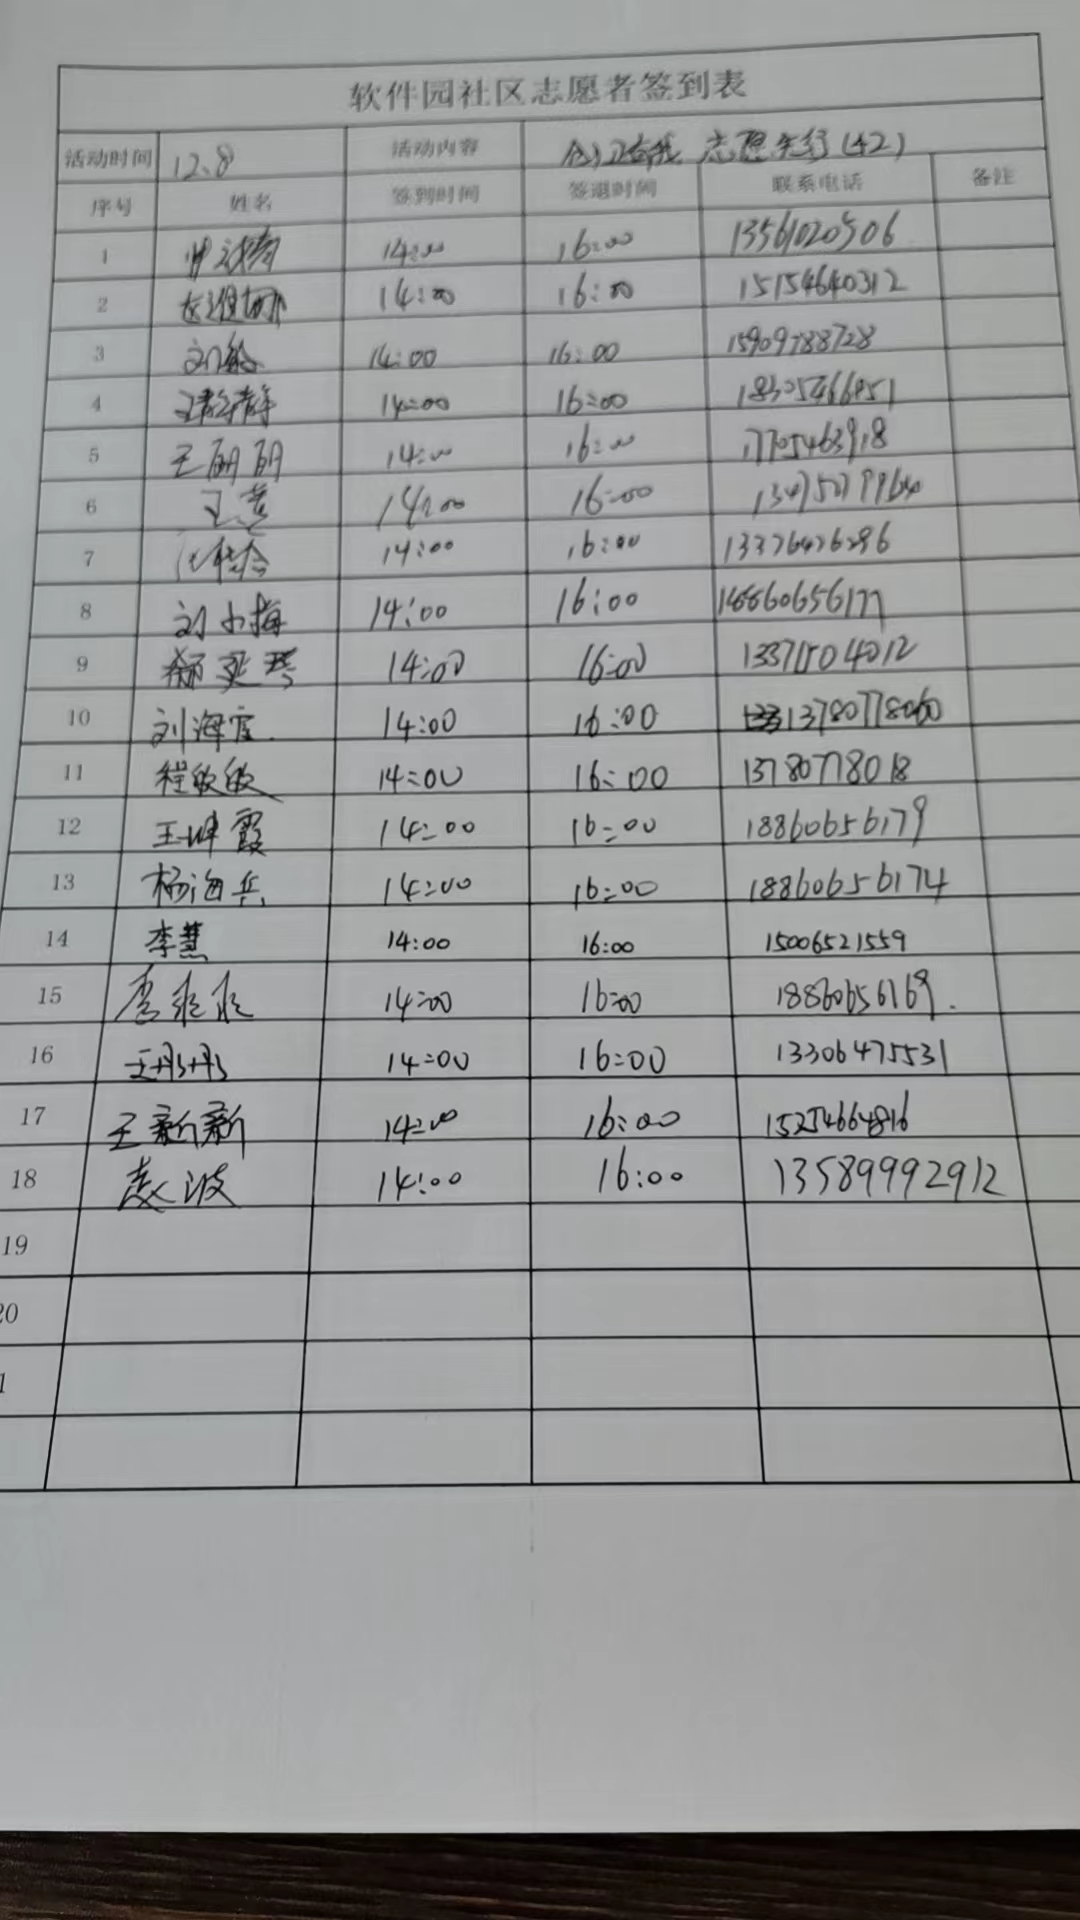 软件园社区志愿者签到表
活动时间 12.8 活动内容 志愿先行(42)
序号 姓名 签到时间 签退时间 联系电话 备注
1 14:00 16:00 13561020506
2 14:00 16:00 15154640312
3 刘敏 14:00 16:00 15909788728
4 王静静 14:00 16:00
5 王丽丽 14:00 16:00 17705463918
6 14:00 16:00
7 14:00 16:00 13376476296
8 刘小梅 14:00 16:00 18860656177
9 14:00 16:00 13371504012
10 刘海霞 14:00 16:00
11 程敏敏 14:00 16:00 13780778018
12 王坤霞 14:00 16:00 18860656179
13 杨海兵 14:00 16:00 18860656174
14 李慧 14:00 16:00 15006521559
15 14:00 16:00 18860656169.
16 王丹丹 14:00 16:00 13306475531
17 王新新 14:00 16:00 15254664816
18 赵波 14:00 16:00 13589992912
19
20
1